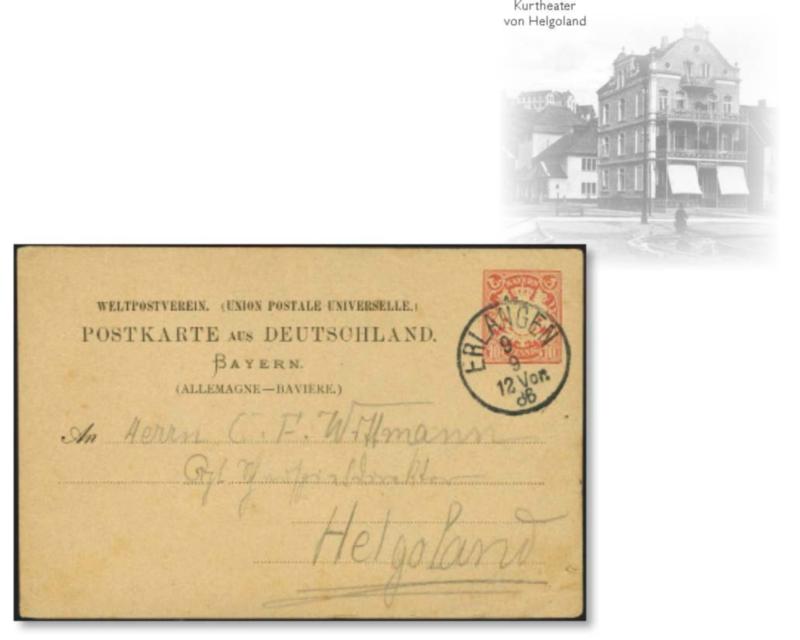 Kurtheater
von Helgoland
BAYERN
WELTPOSTVEREIN. (UNION POSTALE UNIVERSELLE.)
POSTKARTE AUS DEUTSCHLAND.
BAYERN.
(ALLEMAGNE—BAVIERE.)
10 10
ERLANGEN
9
9
12 Vor.
86
An Herrn C. F. Wittmann
Helgoland